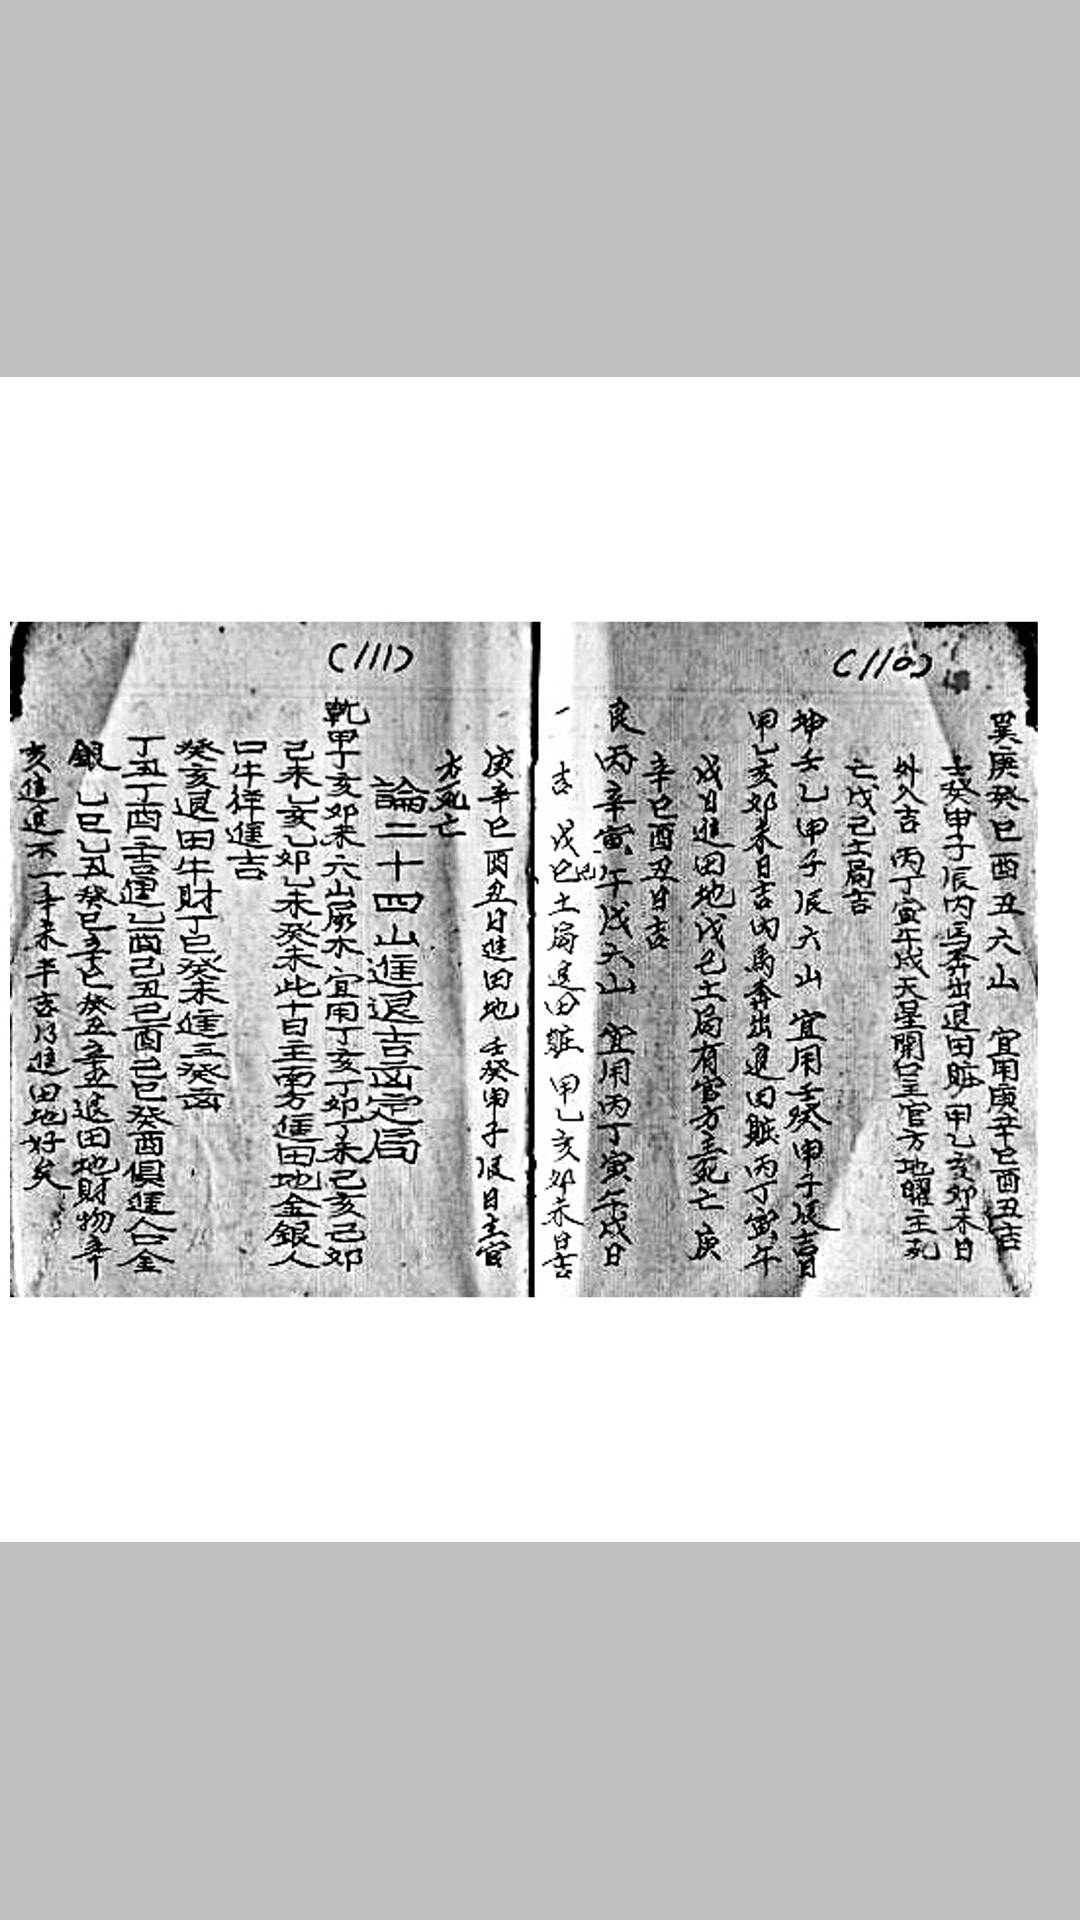 (110)
巽庚癸巳酉丑六山　宜用庚辛巳酉丑吉
壬癸甲子辰丙馬奔出退田賍甲乙亥卯未日
外入吉　丙丁寅午戌天星開仁主官方地曜主死
亡戊己土局吉
坤壬乙申子辰六山　宜用壬癸申子辰吉日
甲乙亥卯未日吉丙馬奔出進田賍丙丁寅午
戌日進田地戊己土局有官方主死亡　庚
辛巳酉丑日吉
艮丙辛寅午戌六山　宜用丙丁寅午戌日
一吉　戊己土局進田賍　甲乙亥卯未日吉
(111)
庚辛巳酉丑日進田地　壬癸申子辰日主官
方死亡
論二十四山進退吉凶定局
乾甲丁亥卯未六山屬木宜用丁亥丁卯丁未己亥己卯
己未乙亥乙卯乙未癸未此十日主南方進田地金銀人
口牛徉進吉
癸亥退田牛財丁巳癸未進三癸凶
丁丑丁酉主吉運乙酉己丑己酉己巳癸酉俱進人口金
銀　乙巳乙丑癸巳辛巳癸丑辛丑退田地財物辛
亥進退不一辛未半吉月進田地好矣